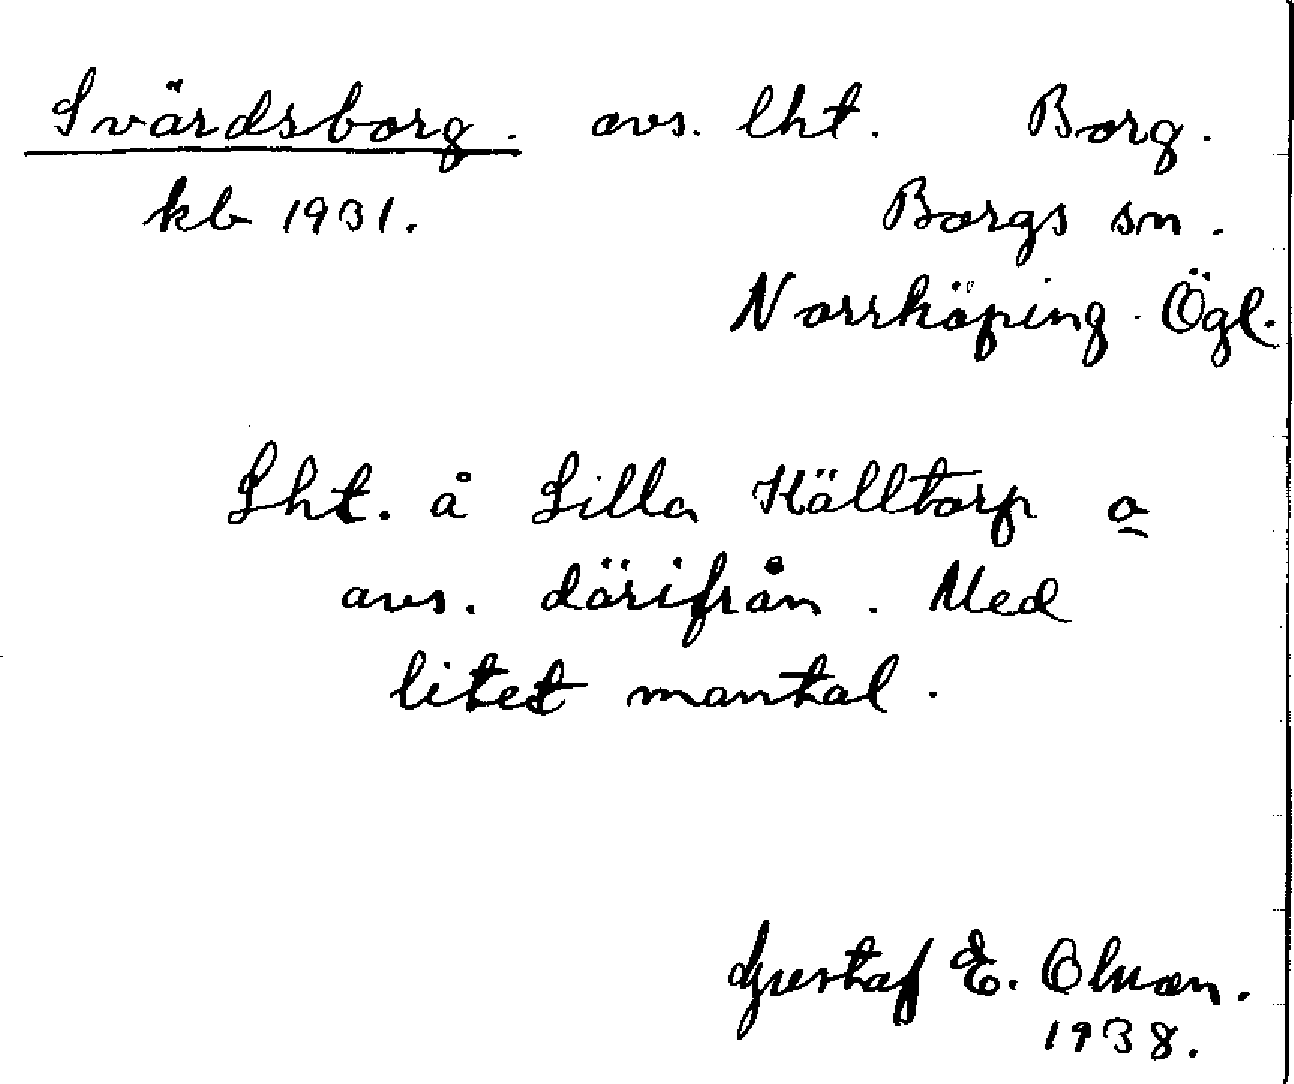 Svärdsborg. avs. lht. Borg.
kb 1931. Borgs sn.
Norrköping. Ögl.
Lht. å Lilla Källtorp o
avs. därifrån. Med
litet mantal.
Gustaf E. Olson.
1938.